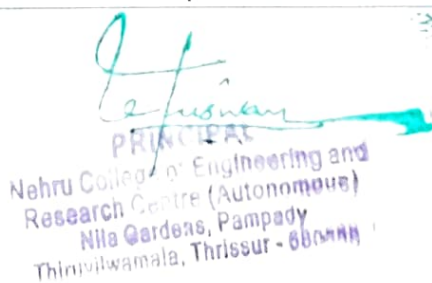 PRINCIPAL
Nehru College of Engineering and
Research Centre (Autonomous)
Nila Gardens, Pampady
Thiruvilwamala, Thrissur -